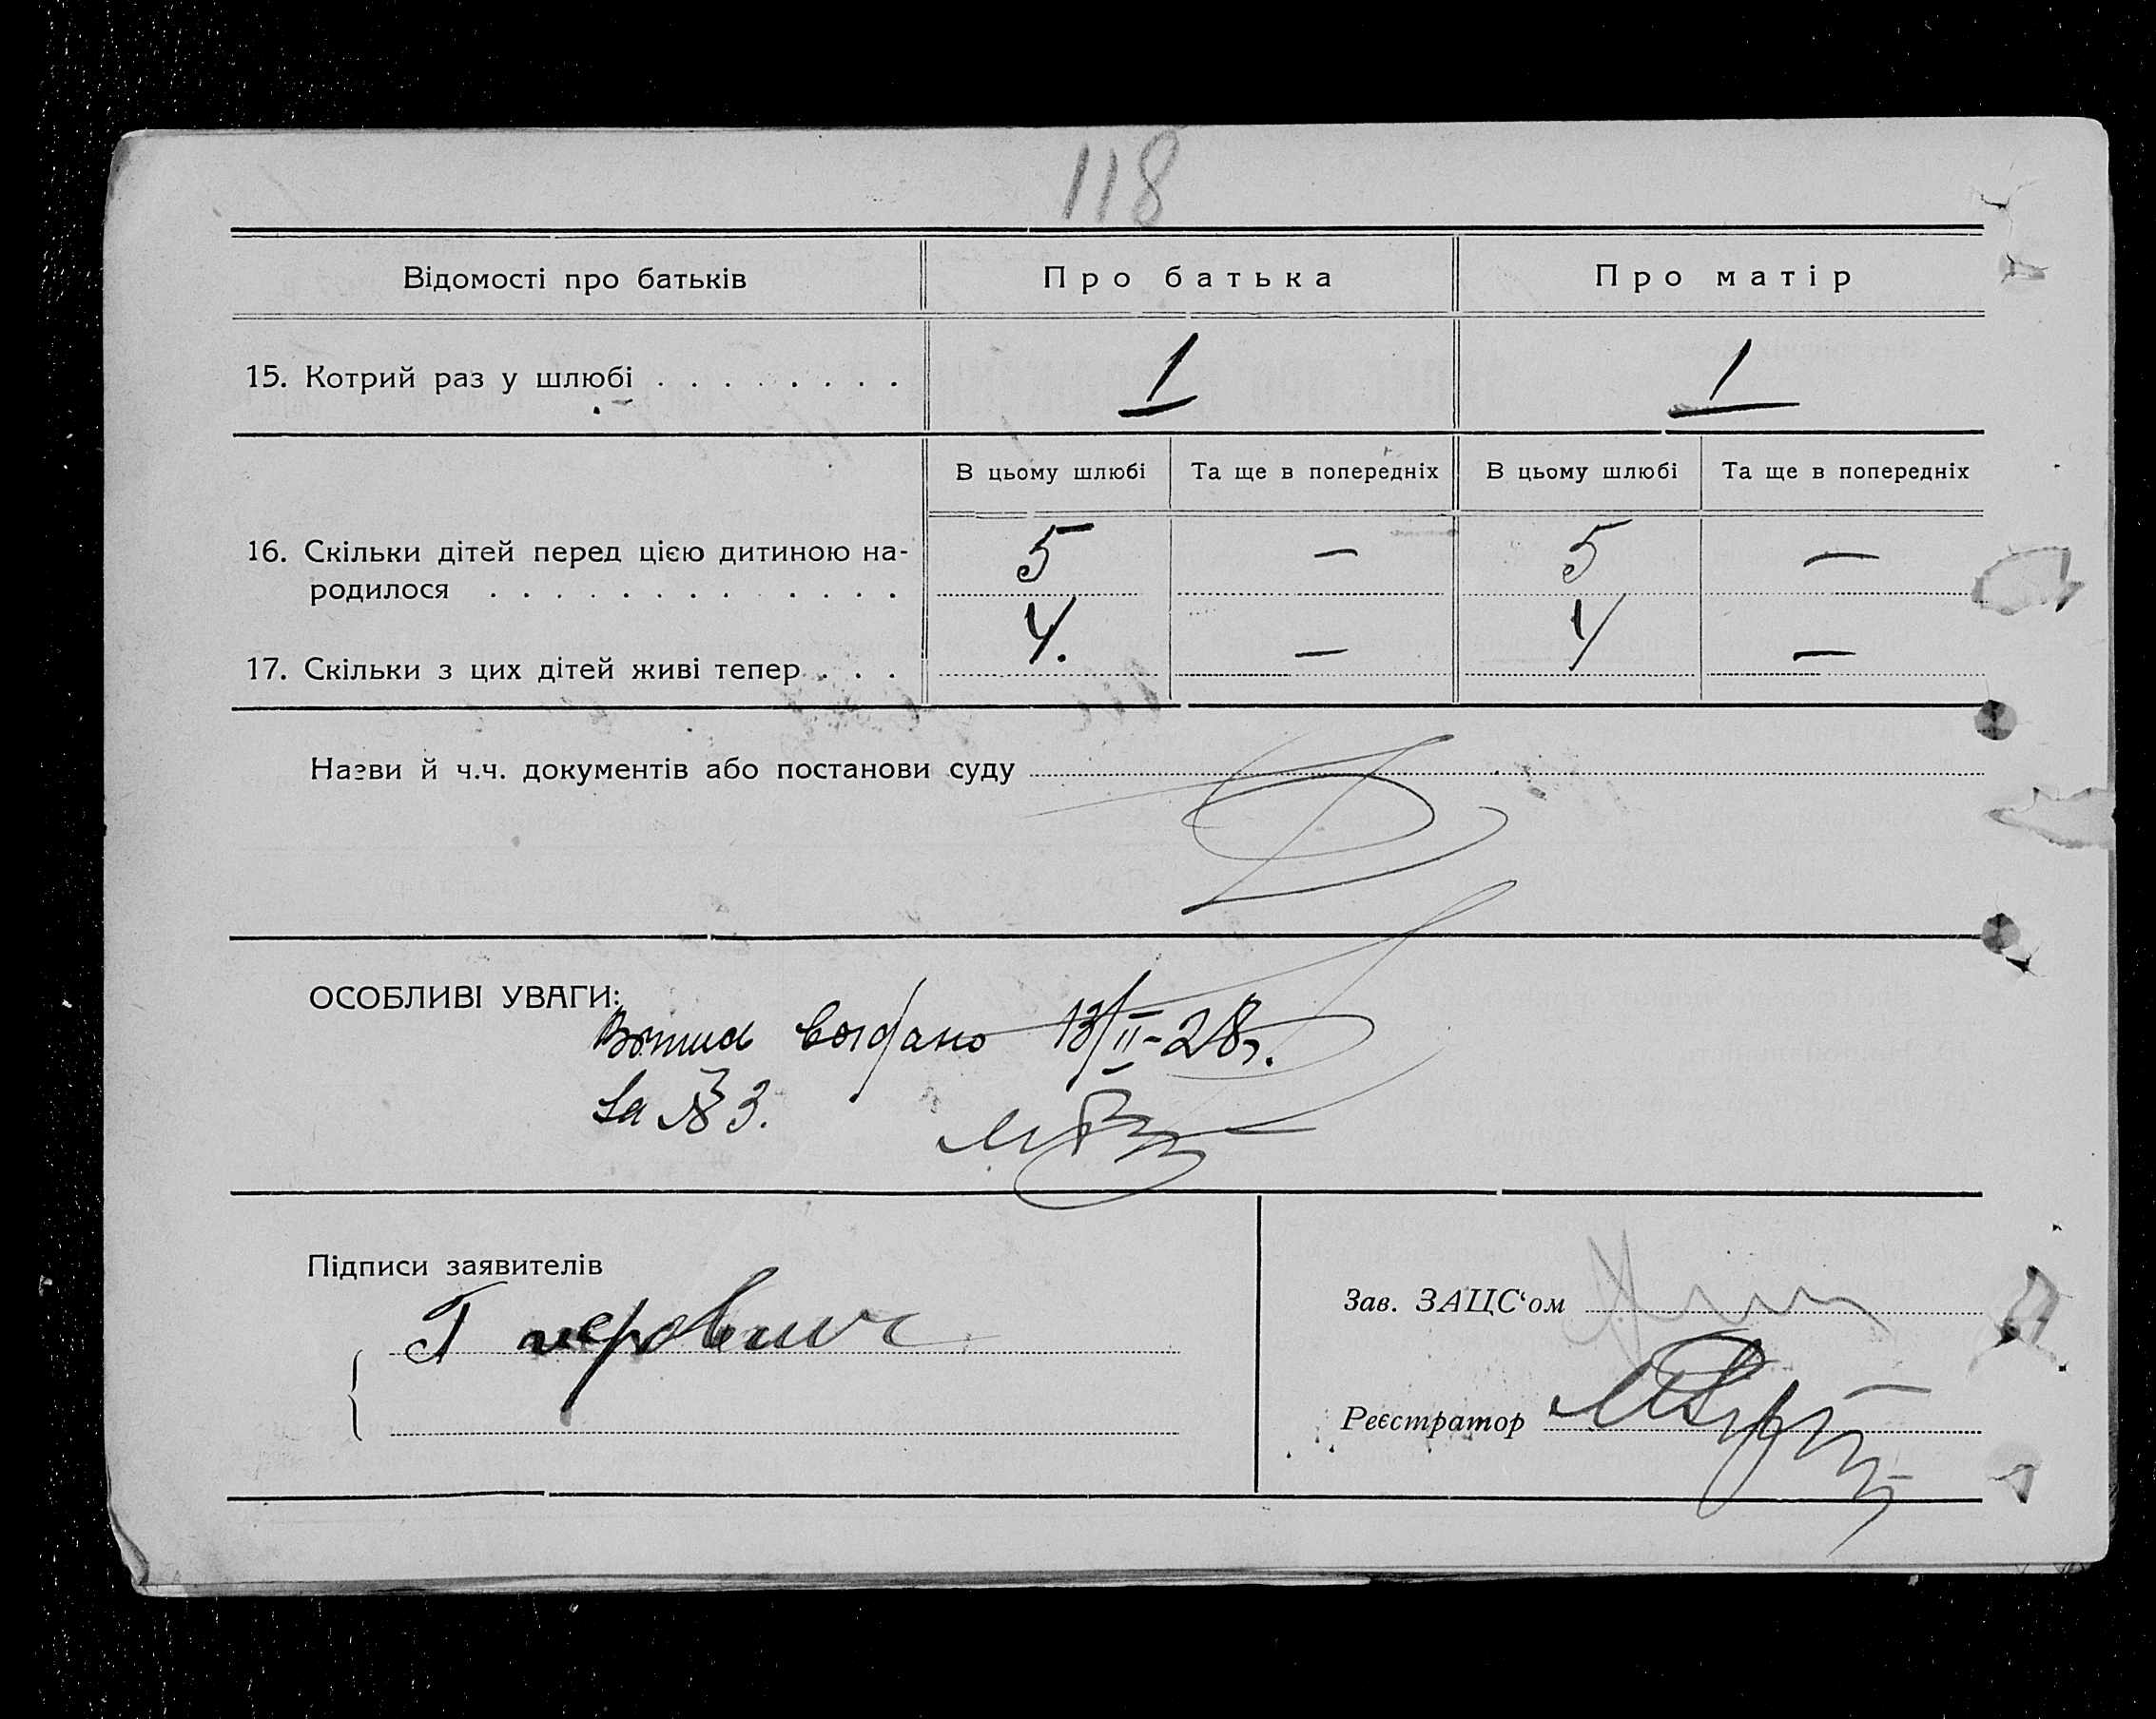 118
Відомості про батьків
Про батька
Про матір
15. Котрий раз у шлюбі . . . . . . . .
1
1
В цьому шлюбі
Та ще в попередніх
В цьому шлюбі
Та ще в попередніх
16. Скільки дітей перед цією дитиною на-
родилося . . . . . . . . . . . . .
5
—
5
—
17. Скільки з цих дітей живі тепер . . .
4.
—
4
—
Назви й ч.ч. документів або постанови суду
ОСОБЛИВІ УВАГИ:
выдано 13/II-28г.
За № 3.
Підписи заявителів
Зав. ЗАЦС‘ом
Реєстратор